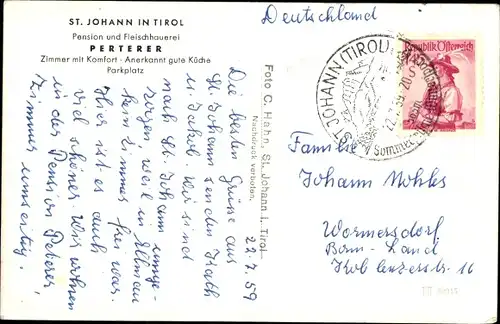 ST. JOHANN IN TIROL
Pension und Fleischhauerei
PERTERER
Zimmer mit Komfort - Anerkannt gute Küche
Parkplatz
22.7.59
Die besten Grüße aus
St. Johann senden Kath
u. Jakob. Wir sind
nach St. Johann umge-
zogen weil in Ellmau
kein Zimmer frei war.
Hier ist es auch
viel schöner. Wir wohnen
in der Pension Peterer,
Zimmer umseitig.
Foto C. Hahn, St. Johann i. Tirol
Nachdruck verboten.
Deutschland
ST. JOHANN (TIROL)
22.7.59
Sommer
Republik Österreich
Familie
Johann Nöhles
Wormersdorf
Bonn-Land
Koblenzerstr. 16